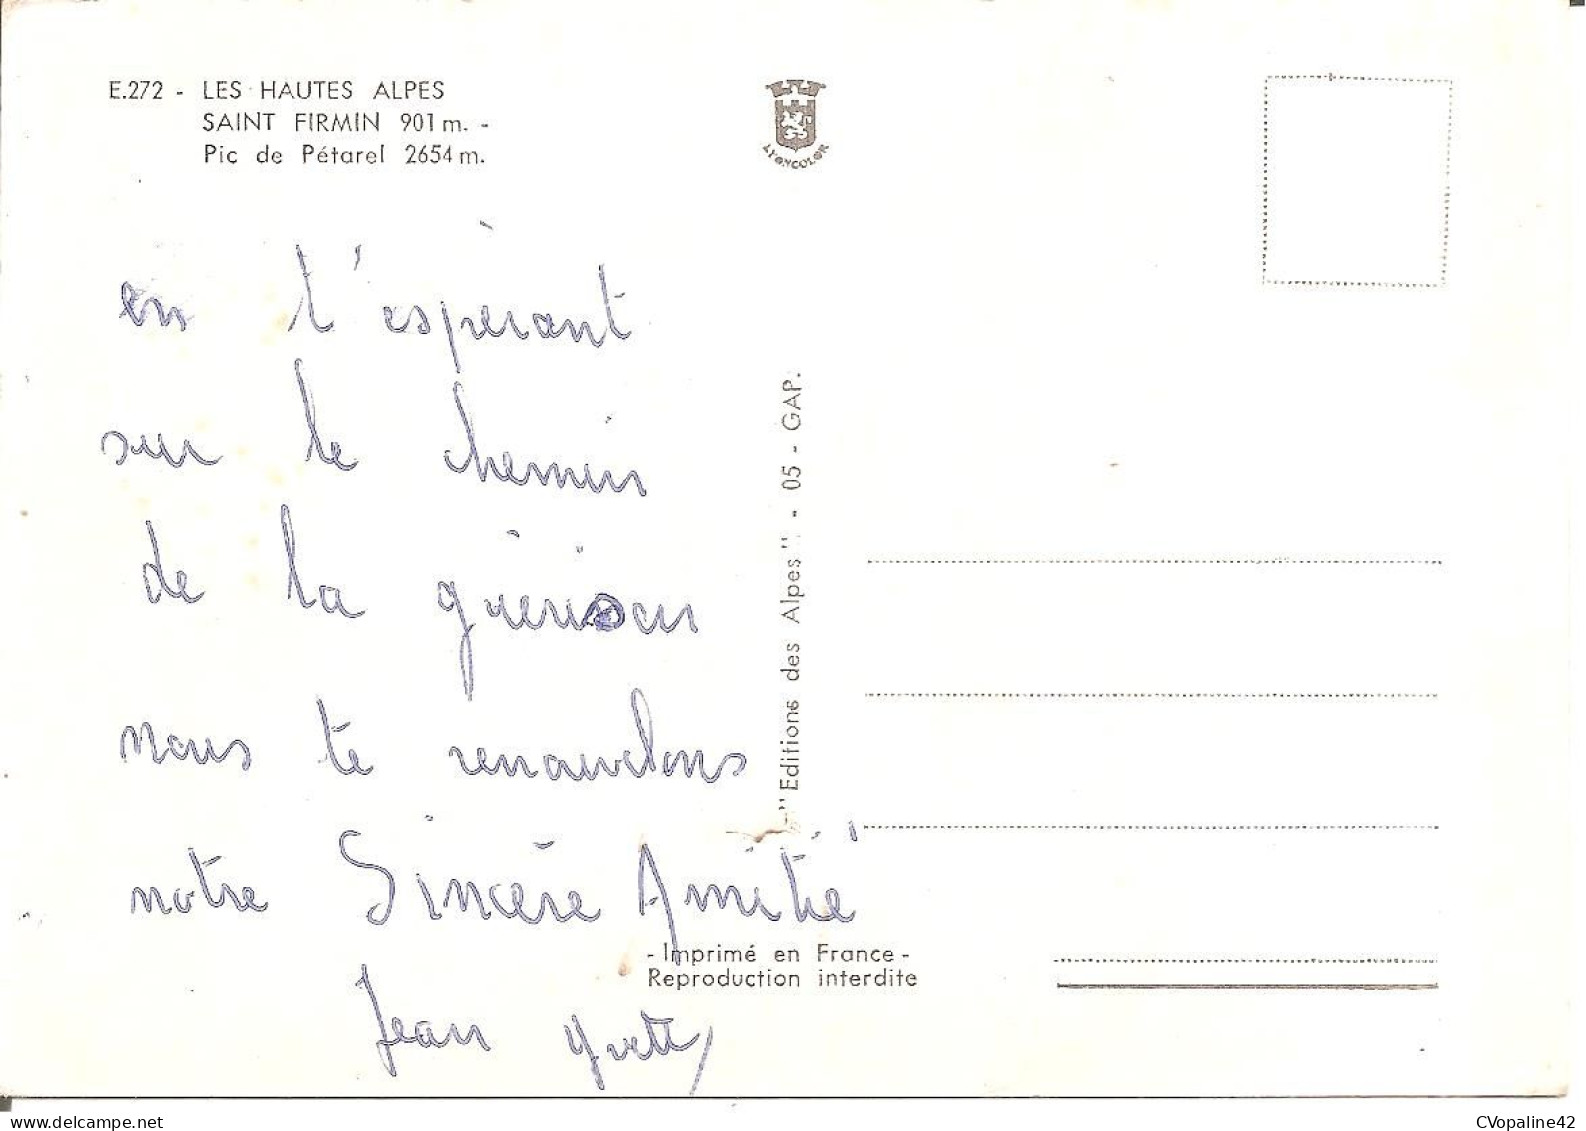 E.272 - LES HAUTES ALPES
SAINT FIRMIN 901 m. -
Pic de Pétarel 2654 m.
LYONCOLOR
en t'espèrant
sur le chemin
de la guérison
nous te renouvelons
notre Sincère Amitié
Jean Yvette
"Editions des Alpes" - 05 - GAP.
- Imprimé en France -
Reproduction interdite
CVopaline42